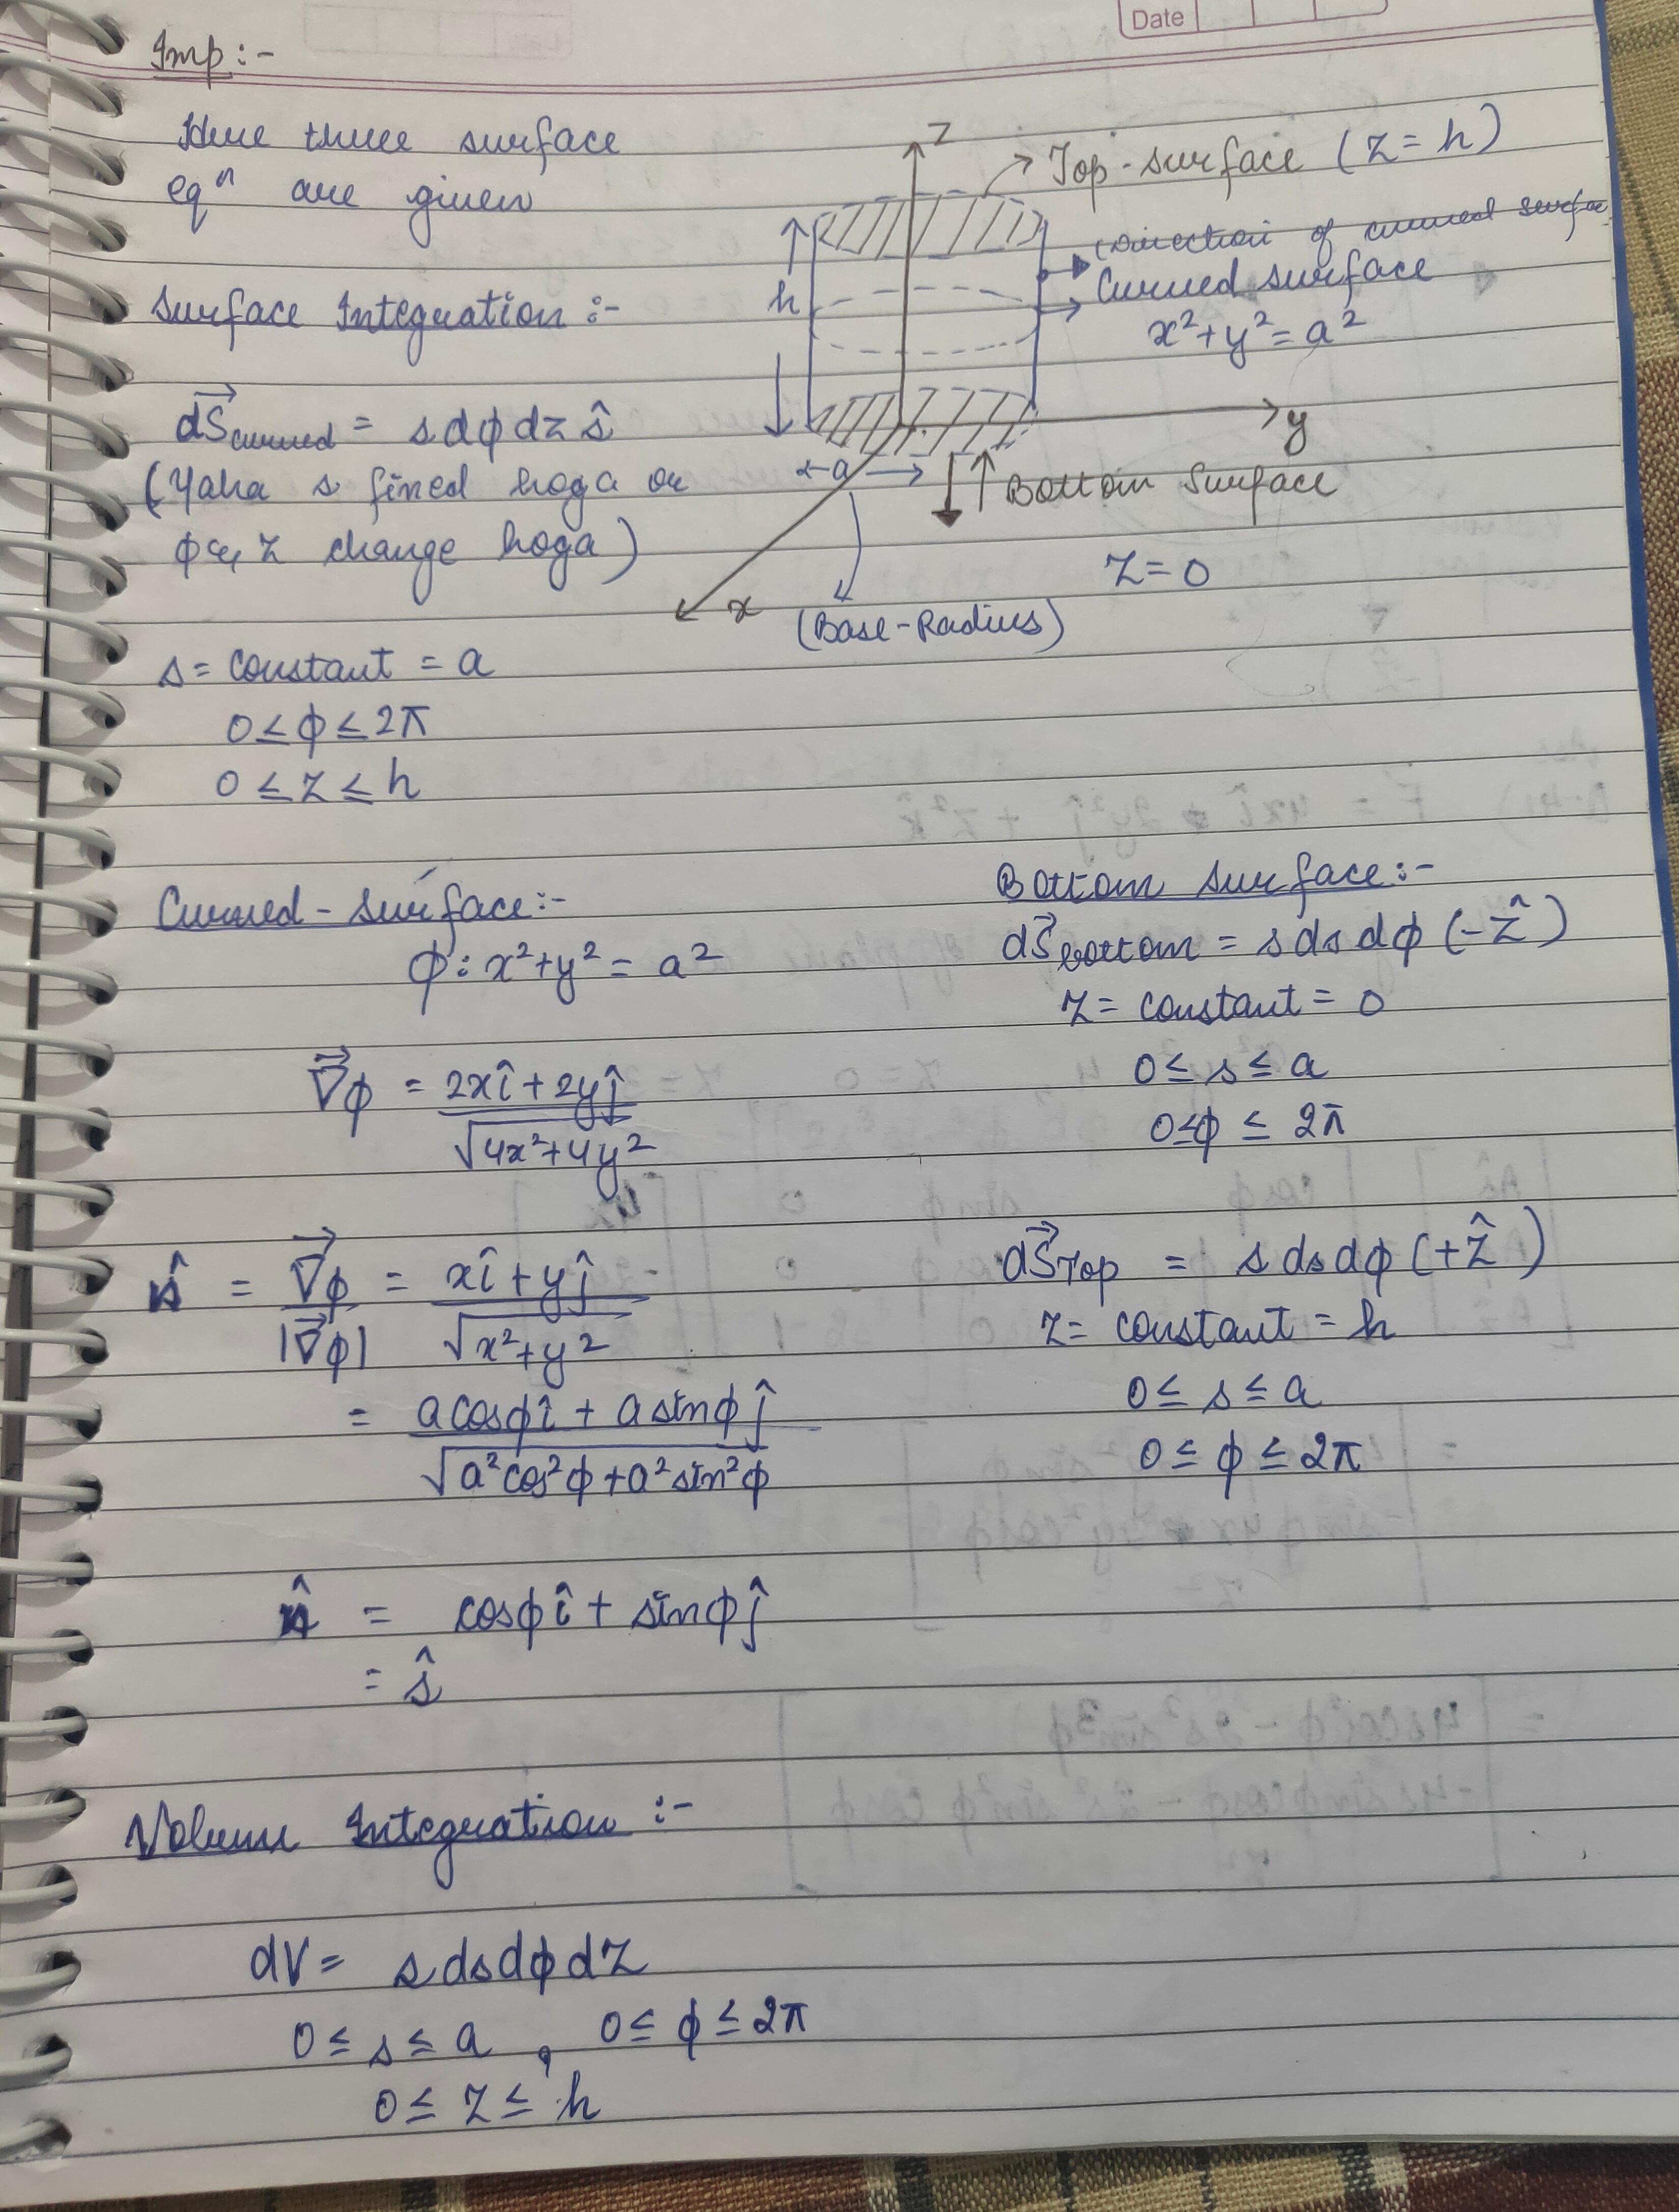 Date
Imp:-
Here three surface
eqⁿ are given
Surface Integration :-
dS⃗curved = s dϕ dz ŝ
(Yaha s fixed hoga or
ϕ &, z change hoga)
s = constant = a
0 ≤ ϕ ≤ 2π
0 ≤ z ≤ h
z
Top-surface (z = h)
(Direction of curved surface
Curved surface
x² + y² = a²
h
y
a
Bottom Surface
z = 0
x
(Base-Radius)
Curved-surface:-
ϕ: x² + y² = a²
∇⃗ϕ = 2xî + 2yĵ
√4x² + 4y²
n̂ = ∇⃗ϕ = xî + yĵ
|∇⃗ϕ| √x² + y²
= a cosϕ î + a sinϕ ĵ
√a² cos²ϕ + a² sin²ϕ
n̂ = cosϕ î + sinϕ ĵ
= ŝ
Bottom surface:-
dS⃗bottom = s ds dϕ (-ẑ)
z = constant = 0
0 ≤ s ≤ a
0 ≤ ϕ ≤ 2π
dS⃗Top = s ds dϕ (+ẑ)
z = constant = h
0 ≤ s ≤ a
0 ≤ ϕ ≤ 2π
Volum Integration :-
dV = s ds dϕ dz
0 ≤ s ≤ a , 0 ≤ ϕ ≤ 2π
0 ≤ z ≤ h